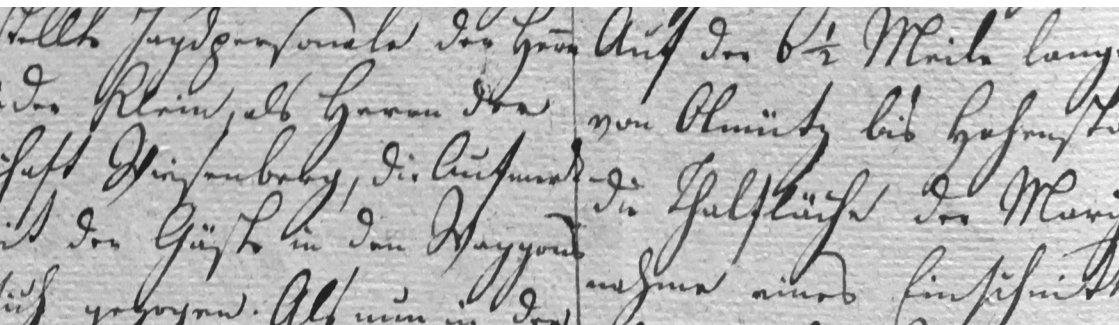 stellte Jagdpersonale der Herrn
der Klein, als Herrn der
schaft Wiesenberg, die Aufmerk-
it der Gäste in den Waggons
sich gezogen. Als nun in der
Auf der 6 1/2 Meile lang
von Olmütz bis Hohenst
die Thalfläche der Marc
nahme eines Einschnitt